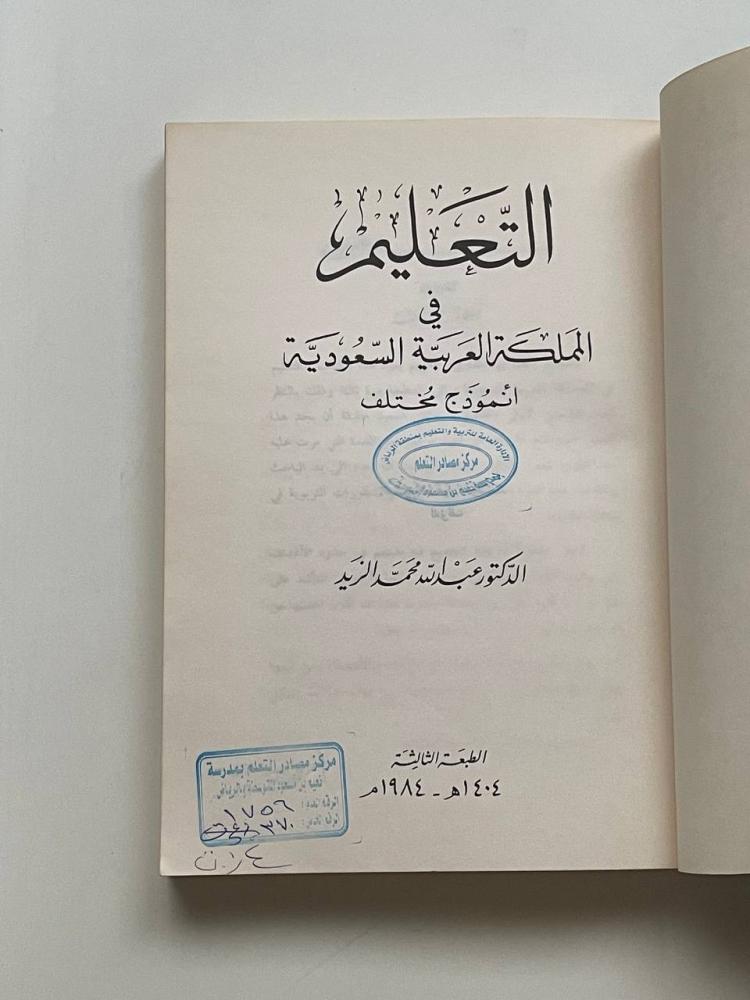 التّعليم
في
المملكة العربيّة السّعوديّة
أنموذج مختلف
الإدارة العامة للتربية والتعليم بمنطقة الرياض
مركز مصادر التعلم
الدكتور عبد الله محمّد الزّيد
الطبعة الثالثة
١٤٠٤هـ - ١٩٨٤م
مركز مصادر التعلم بمدرسة
نعيم بن مسعود المتوسطة بالرياض
الرقم العام: ١٧٥٦
٣٧٠